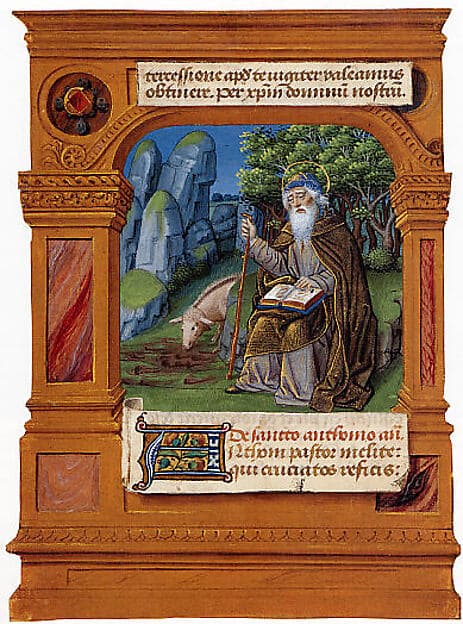 tercessione apd te iugiter valeamus
obtinere. Per xp̄m dominum nostrū.
De sancto anthonio añ.
ANthoni pastor inclite:
qui cruciatos reficis: